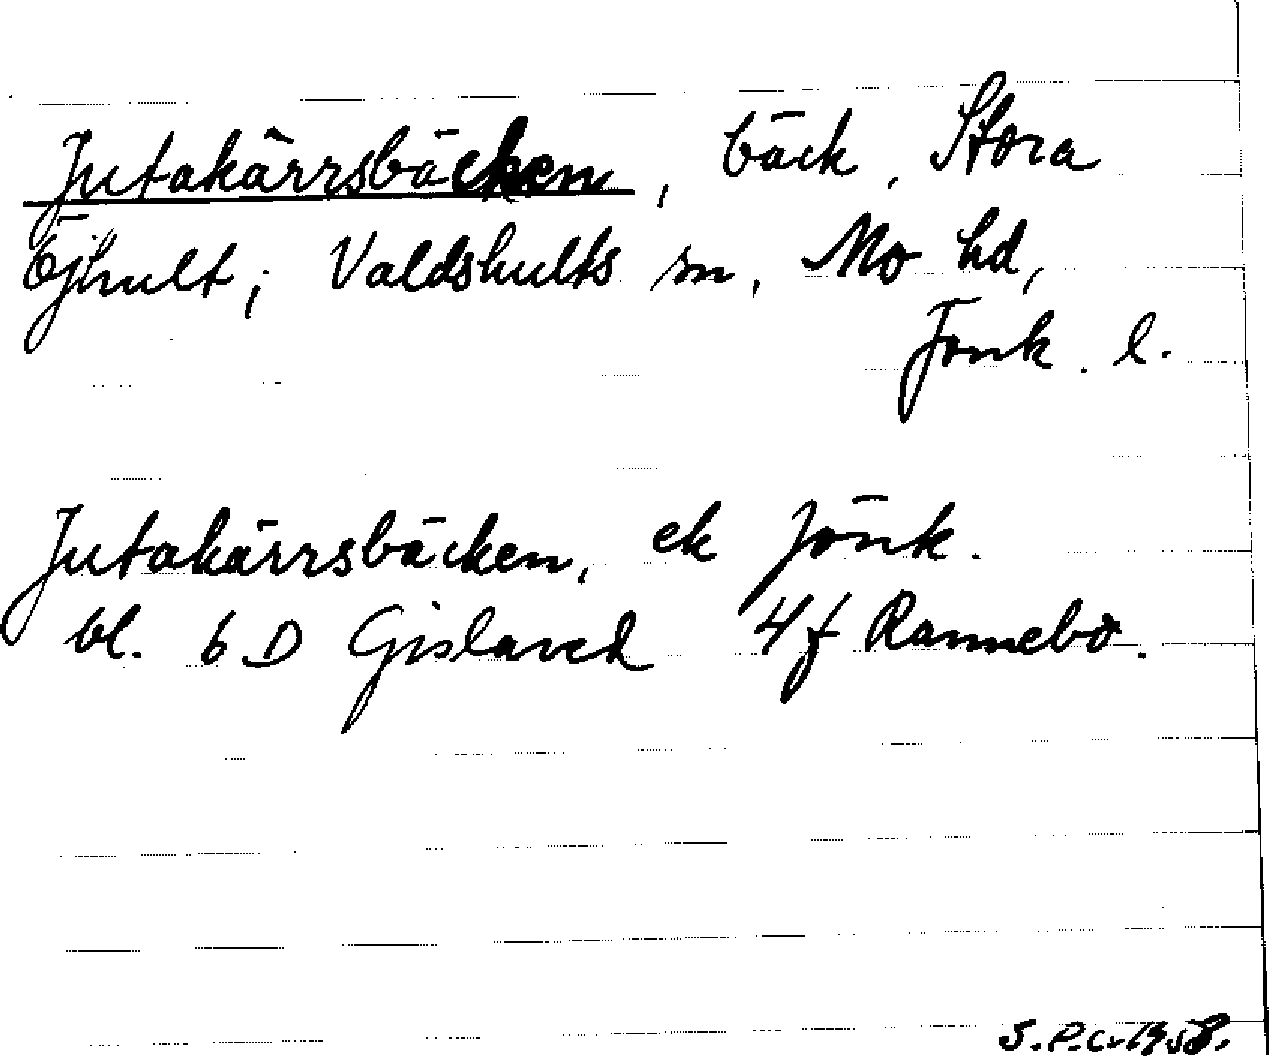 Jutakärrsbäcken, bäck, Stora
Öjhult, Valdshults sn, Mo hd,
Jönk. l.
Jutakärrsbäcken, ek Jönk.
bl. 6 D Gislaved 4f Rannebo.
S.P.C. 1958.